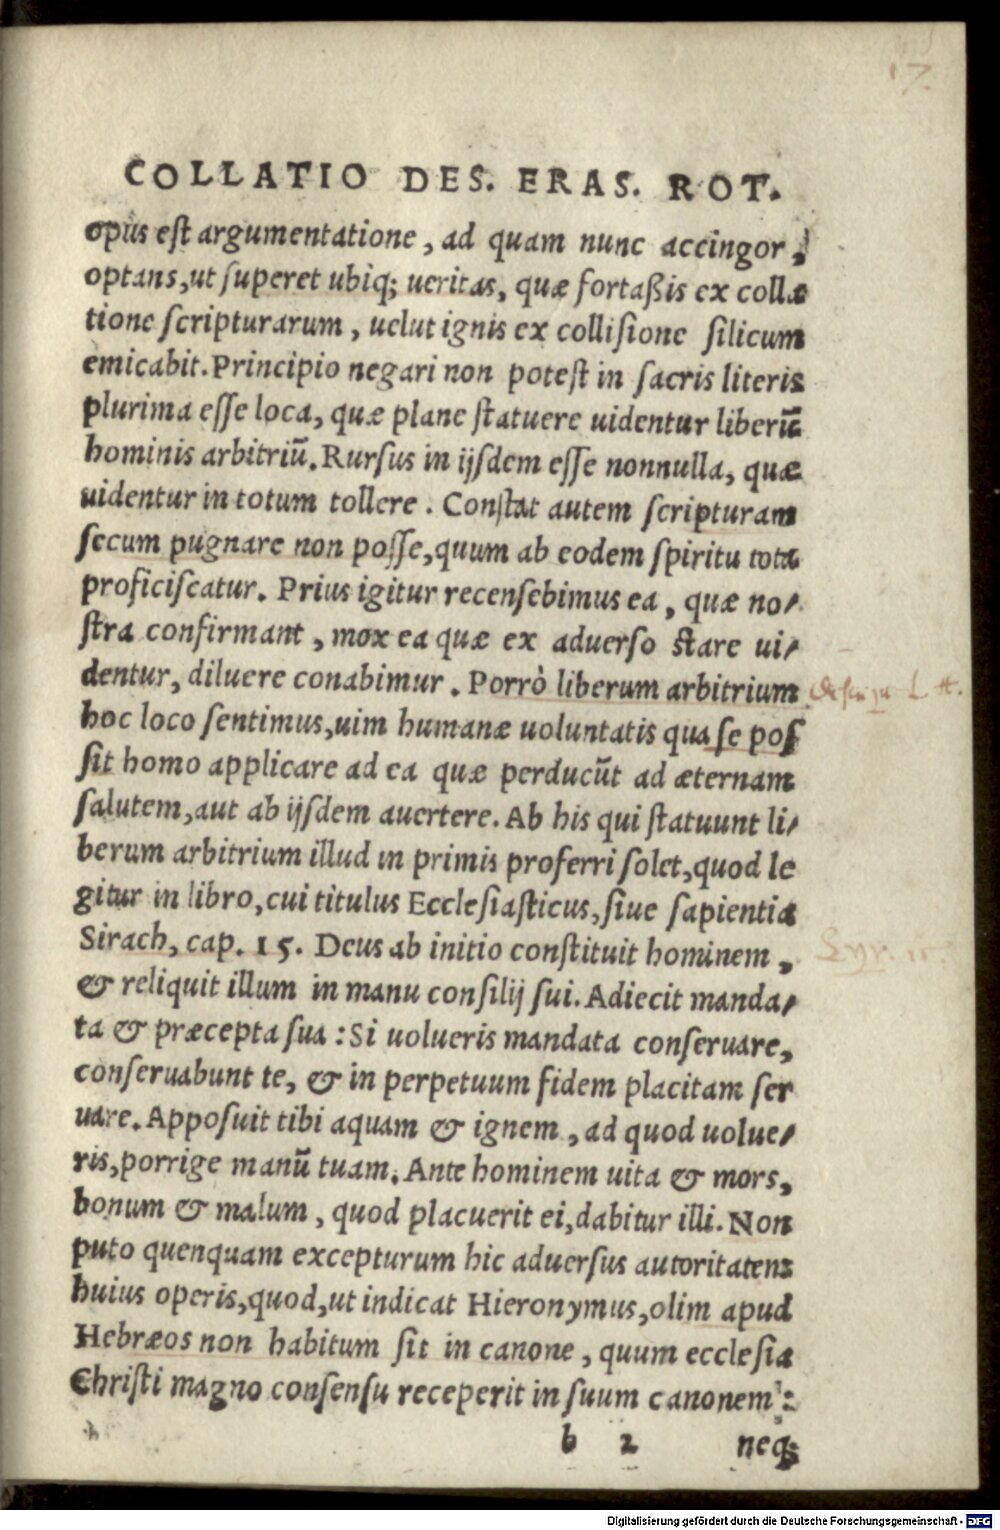 17.
COLLATIO DES. ERAS. ROT.
opus est argumentatione, ad quam nunc accingor,
optans, ut superet ubiq; ueritas, quæ fortaßis ex colla
tione scripturarum, uelut ignis ex collisione silicum
emicabit. Principio negari non potest in sacris literis
plurima esse loca, quæ plane statuere uidentur liberū
hominis arbitriū. Rursus in ijsdem esse nonnulla, quæ
uidentur in totum tollere. Constat autem scripturam
secum pugnare non posse, quum ab eodem spiritu tota
proficiscatur. Prius igitur recensebimus ea, quæ no/
stra confirmant, mox ea quæ ex aduerso stare ui/
dentur, diluere conabimur. Porrò liberum arbitrium
hoc loco sentimus, uim humanæ uoluntatis qua se pos
sit homo applicare ad ea quæ perducūt ad æternam
salutem, aut ab ijsdem auertere. Ab his qui statuunt li/
berum arbitrium illud in primis proferri solet, quod le
gitur in libro, cui titulus Ecclesiasticus, siue sapientia
Sirach, cap. 15. Deus ab initio constituit hominem,
& reliquit illum in manu consilij sui. Adiecit manda/
ta & præcepta sua: Si uolueris mandata conseruare,
conseruabunt te, & in perpetuum fidem placitam ser
uare. Apposuit tibi aquam & ignem, ad quod uolue/
ris, porrige manū tuam. Ante hominem uita & mors,
bonum & malum, quod placuerit ei, dabitur illi. Non
puto quenquam excepturum hic aduersus autoritatem
huius operis, quod, ut indicat Hieronymus, olim apud
Hebræos non habitum sit in canone, quum ecclesia
Christi magno consensu receperit in suum canonem:
b 2 neq;
Digitalisierung gefördert durch die Deutsche Forschungsgemeinschaft - DFG